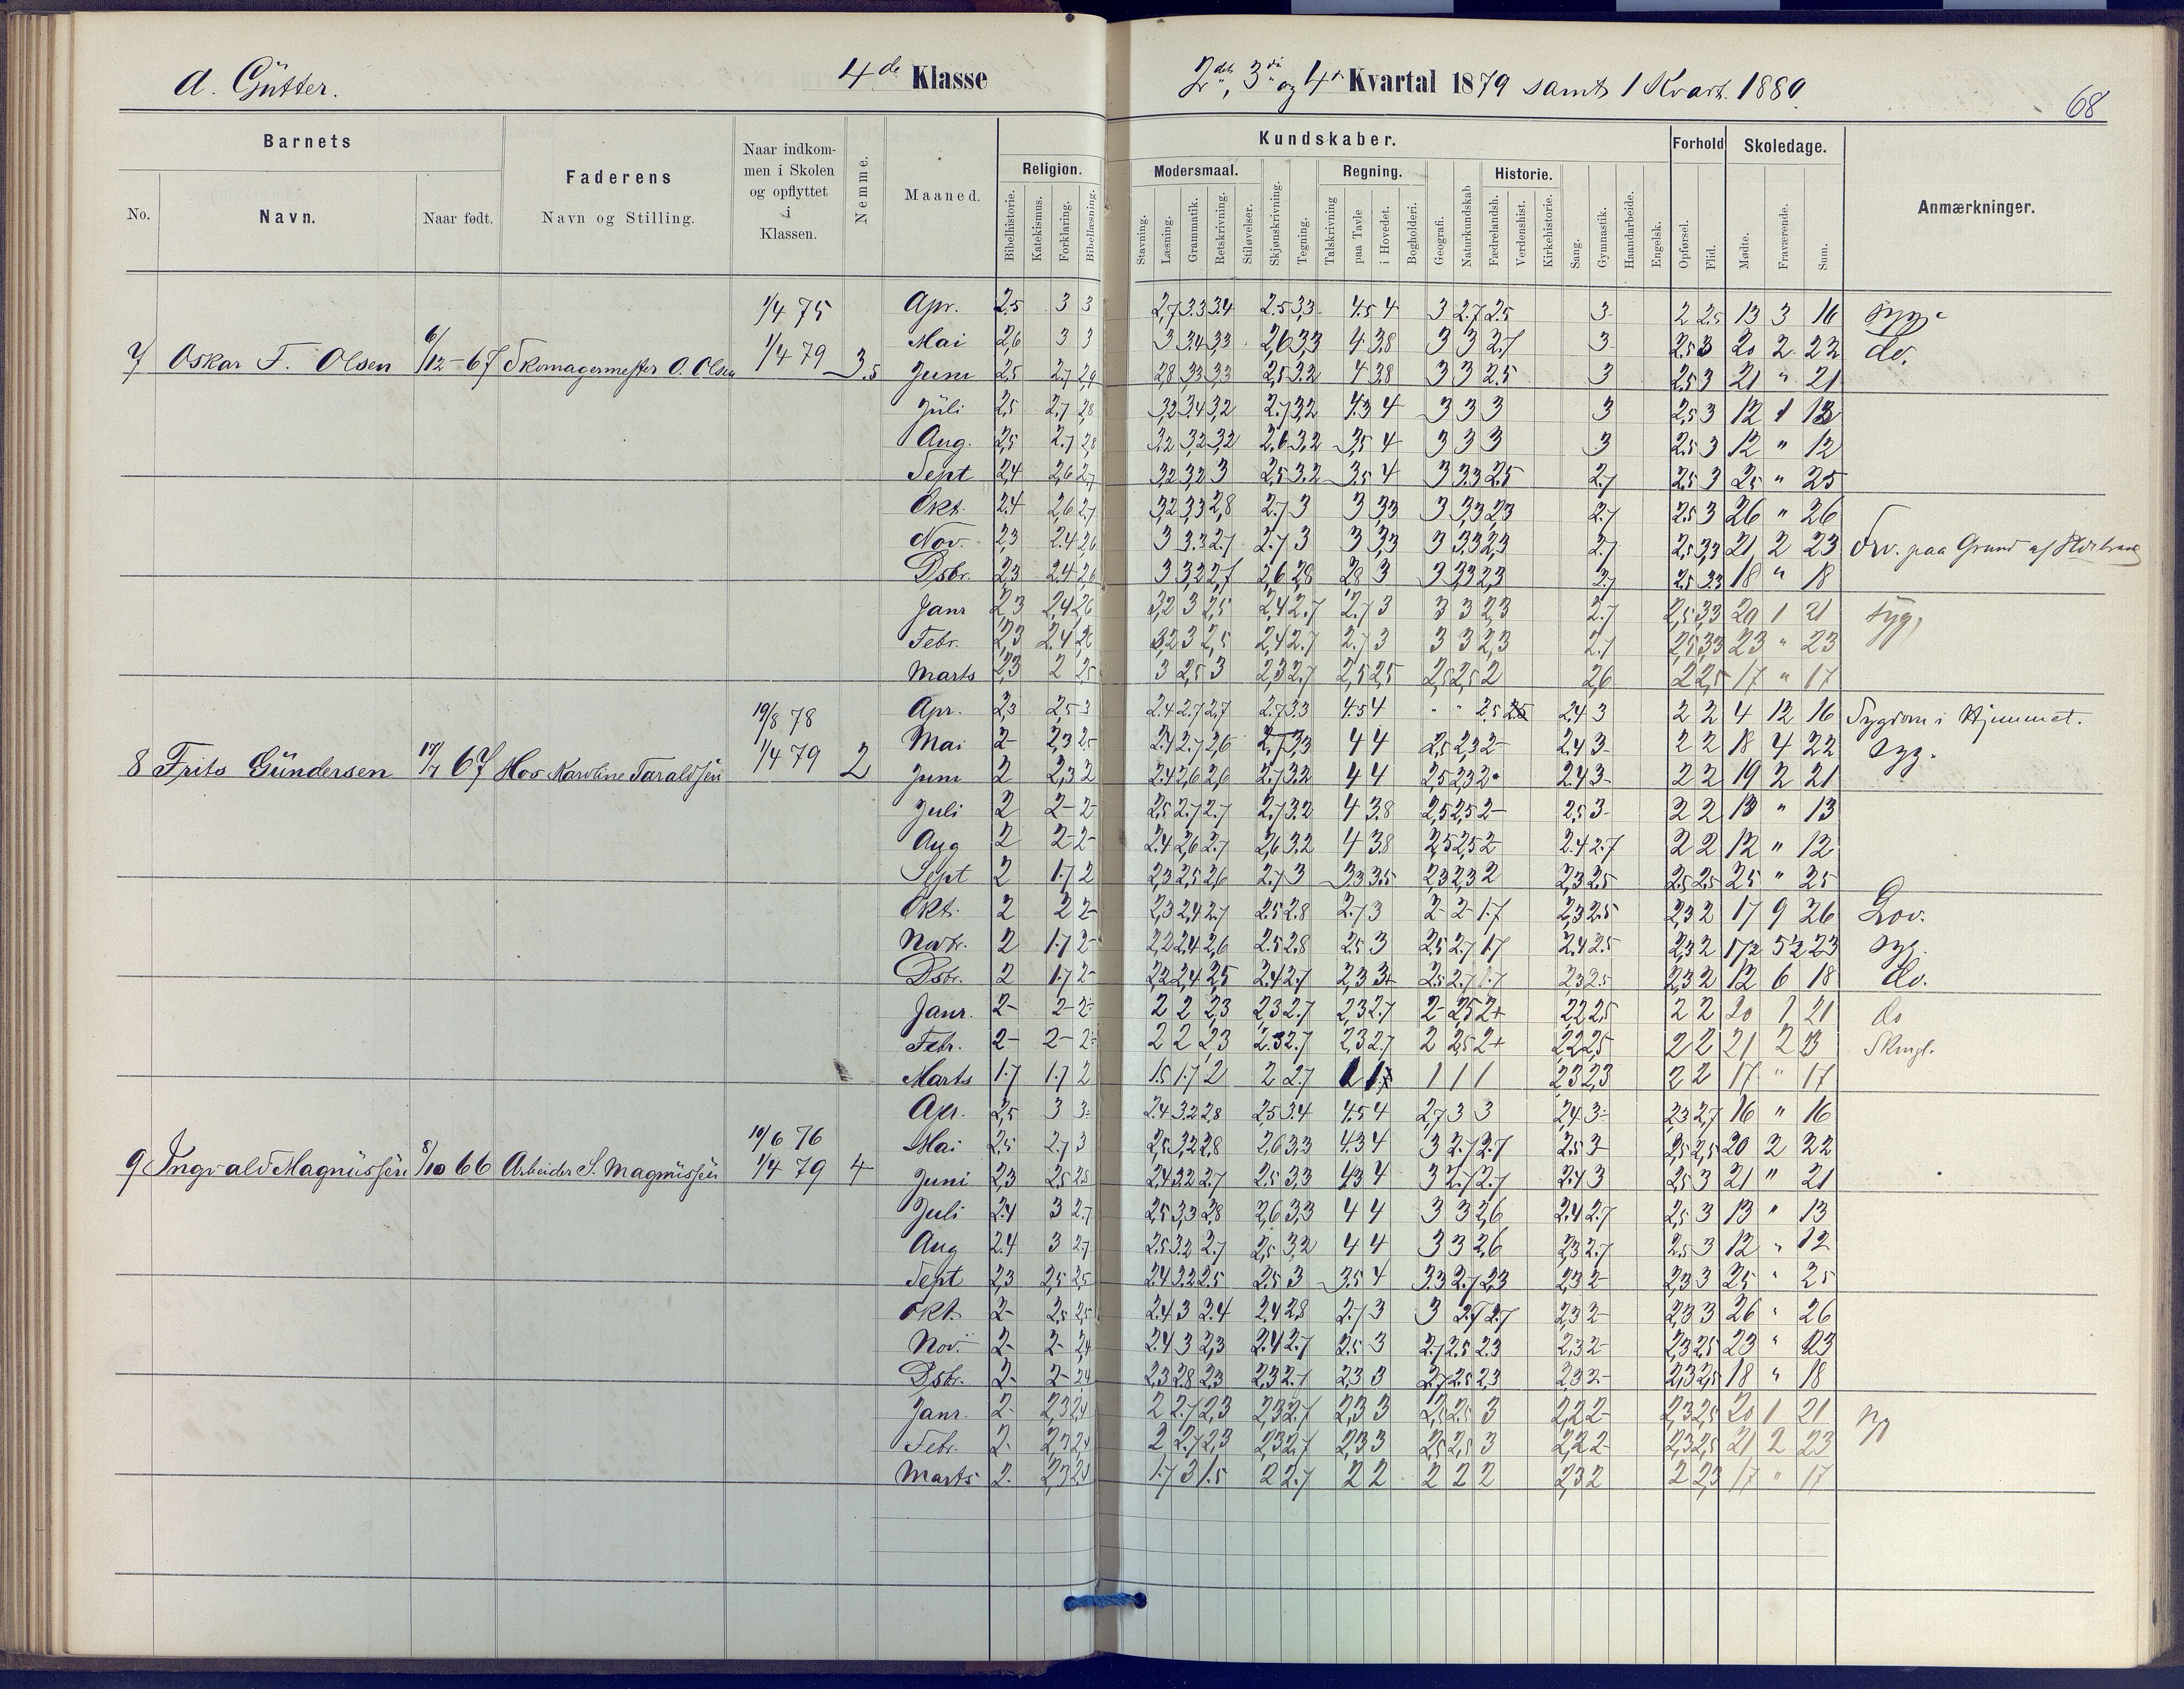 a. Gutter. 4de Klasse 2det, 3die og 4de Kvartal 1879 samt 1 Kvart. 1880.
68
Barnets Kundskaber. Forhold Skoledage.
Faderens Naar indkommen i Skolen og opflyttet i Klassen. Nemme. Maaned. Religion. Modersmaal. Regning. Historie. Anmærkninger.
No. Navn. Naar født. Navn og Stilling. Bibelhistorie. Katekismus. Forklaring. Bibellæsning. Stavning. Læsning. Grammatik. Retskrivning. Stiløvelser. Skjønskrivning. Tegning. Talskrivning paa Tavle i Hovedet. Bogholderi. Geografi. Naturkundskab Fædrelandsh. Verdenshist. Kirkehistorie. Sang. Gymnastik. Haandarbeide. Engelsk. Opførsel. Flid. Mødte. Fraværende. Sum.
1/4 75 Apr. 2.5 3 3 2,7 3.3 3.4 2.5 3,3 4.5 4 3 2.7 2.5 3 2 2.5 13 3 16 syg
Mai 2,6 3 3 3 3.4 3,3 2,6 3,3 4 3.8 3 3 2.7 3 2.5 3 20 2 22 do.
7 Oskar F. Olsen 6/12-67 Skomagermester O. Olsen 1/4 79 3.5 Juni 2.5 2.7 2,9 2,8 3,3 3,3 2,5 3.2 4 3,8 3 3 2.5 3 2.5 3 21 " 21
Juli 2,5 2.7 2,8 3,2 3,4 3,2 2.7 3,2 4.3 4 3 3 3 3 2.5 3 12 1 13
Aug. 2,5 2.7 2,8 3.2 3,2 3,2 2.6 3,2 3,5 4 3 3 3 3 2.5 3 12 " 12
Sept 2,4 2,6 2,7 3,2 3,2 3 2,5 3.2 3.5 4 3 3.3 2.5 2.7 2.5 3 25 " 25
Okt. 2.4 2,6 2,7 3,2 3,3 2,8 2.7 3 3 3,3 3 3,3 2,3 2.7 2.5 3 26 " 26
Nov. 2,3 2.4 2,6 3 3.3 2.7 2.7 3 3 3,3 3 3.3 2,3 2.7 2,5 3,3 21 2 23 Frv. paa Grund af
Dsbr. 2,3 2.4 2,6 3 3,2 2,7 2,6 2,8 2,8 3 3 3,3 2,3 2.7 2.5 3.3 18 " 18
Janr 2,3 2,4 2,6 3,2 3 2,5 2,4 2.7 2.7 3 3 3 2,3 2.7 2,5 3,3 20 1 21 syg,
Febr. 2,3 2.4 2,6 3,2 3 2,5 2,4 2.7 2.7 3 3 3 2,3 2.7 2,5 3,3 23 " 23
Marts 2,3 2 2,5 3 2,5 3 2,3 2.7 2,5 2,5 2,5 2,5 2 2,6 2 2,5 17 " 17
19/8 78 Apr. 2,3 2,5 3 2.4 2.7 2,7 2.7 3.3 4.5 4 " " 2.5 2.4 3 2 2 4 12 16 Sygdom i Hjemmet.
Mai 2- 2,3 2.5 2.4 2.7 2,6 2,7 3,3 4 4 2,5 2,3 2- 2.4 3- 2 2 18 4 22 syg.
8 Frits Gundersen 17/7 67 Hos Karoline Taraldsen 1/4 79 2 Juni 2 2,3 2 2.4 2,6 2,6 2.7 3.2 4 4 2,5 2,3 2- 2.4 3- 2 2 19 2 21
Juli 2 2- 2- 2,5 2.7 2.7 2.7 3.2 4 3.8 2,5 2,5 2- 2,5 3- 2 2 13 " 13
Aug 2 2- 2- 2.4 2,6 2.7 2,6 3.2 4 3.8 2,5 2,5 2- 2.4 2.7 2 2 12 " 12
Sept 2 1.7 2 2,3 2,5 2,6 2.7 3 3.3 3.5 2,3 2,3 2 2,3 2.5 2.5 2.5 25 " 25
Okt. 2 2 2- 2,3 2,4 2.7 2.5 2.8 2.7 3 2- 2- 1.7 2,3 2.5 2,3 2 17 9 26 Lov.
Novbr. 2 1.7 2- 2,2 2.4 2,6 2.5 2.8 2.5 3 2.5 2.7 1.7 2.4 2.5 2,3 2 17½ 5½ 23 syg.
Dsbr. 2 1.7 2- 2,2 2,4 2,5 2.4 2.7 2,3 3+ 2.5 2.7 1.7 2,3 2.5 2,3 2 12 6 18 do.
Janr. 2- 2- 2- 2 2 2,3 2,3 2.7 2,3 2.7 2- 2,5 2+ 2,2 2,5 2 2 20 1 21 do
Febr. 2- 2- 2- 2 2 2,3 2.3 2.7 2,3 2.7 2 2,5 2+ 2,2 2,5 2 2 21 2 23
Marts 1.7 1.7 2 1.5 1.7 2 2 2.7 1 1 1 2,3 2,3 2 2 17 " 17
Apr. 2,5 3 3- 2.4 3.2 2,8 2,5 3.4 4.5 4 2,7 3 3 2,4 3- 2,3 2,7 16 " 16
10/6 76 Mai 2.5 2.7 3 2,5 3,2 2,8 2,6 3,3 4.3 4 3 2.7 2.7 2.5 3 2,5 2,5 20 2 22
9 Ingvald Magnussen 8/10 66 Arbeider S. Magnussen 1/4 79 4 Juni 2,3 2,5 2,8 2,4 3.2 2.7 2.5 3,3 4,3 4 3 2.7 2.7 2.4 3 2.5 3 21 " 21
Juli 2.4 3 2.7 2,5 3,3 2,8 2,6 3,3 4 4 3 3 2,6 2.4 2.7 2,5 3 13 " 13
Aug 2.4 3 2.7 2.5 3.2 2.7 2,5 3,2 4 4 3 3 2,6 2,3 2.7 2.5 3 12 " 12
Sept 2,3 2,5 2,5 2.4 3.2 2.5 2.5 3 3.5 4 3.3 2.7 2,3 2,3 2- 2,3 3 25 " 25
Okt. 2- 2,5 2,5 2.4 3 2.4 2,4 2,8 2.7 3 3 2.7 2.7 2,3 2- 2,3 3 26 " 26
Nov. 2- 2- 2,4 2.4 3 2,3 2.4 2.7 2.5 3 2.7 2.5 2.3 2,3 2- 2,3 2.5 23 " 23
Dsbr. 2- 2- 2,4 2,3 2,8 2,3 2,3 2.7 2,3 3 2,7 2.5 2,3 2,3 2- 2,3 2,5 18 " 18
Janr. 2- 2,3 2,4 2 2.7 2,3 2,3 2.7 2,3 3 2,5 2,5 3 2,2 2- 2,3 2,5 20 1 21 syg
Febr. 2- 2,3 2,4 2 2.7 2,3 2,3 2,7 2,3 3 2,5 2,5 3 2,2 2- 2,3 2,5 21 2 23
Marts 2- 2,3 2,4 1.7 3 1.5 2 2.7 2 2 2 2 2 2,3 2 2 2,3 17 " 17